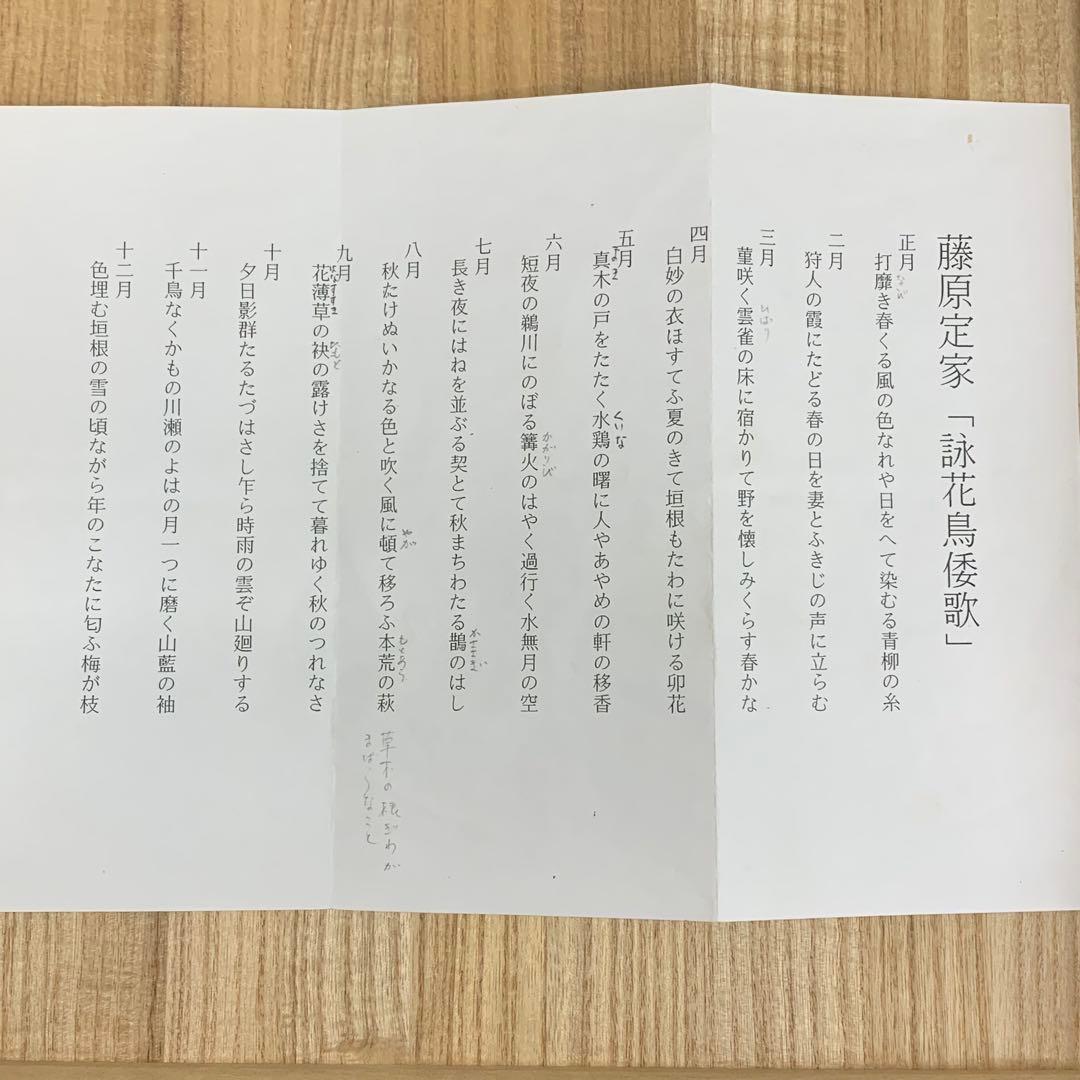 藤原定家「詠花鳥倭歌」
正月
打靡き春くる風の色なれや日をへて染むる青柳の糸
なび
二月
狩人の霞にたどる春の日を妻とふきじの声に立らむ
三月
菫咲く雲雀の床に宿かりて野を懐しみくらす春かな
ひばり
四月
白妙の衣ほすてふ夏のきて垣根もたわに咲ける卯花
五月
真木の戸をたたく水鶏の曙に人やあやめの軒の移香
くいな
六月
短夜の鵜川にのぼる篝火のはやく過行く水無月の空
かがりび
七月
長き夜にはねを並ぶる契とて秋まちわたる鵲のはし
八月
秋たけぬいかなる色と吹く風に頓て移ろふ本荒の萩
やが
もとあら
草木の根がわが
まばらなこと
九月
花薄草の袂の露けさを捨てて暮れゆく秋のつれなさ
はなすすき
たもと
十月
夕日影群たるたづはさし乍ら時雨の雲ぞ山廻りする
十一月
千鳥なくかもの川瀬のよはの月一つに磨く山藍の袖
十二月
色埋む垣根の雪の頃ながら年のこなたに匂ふ梅が枝